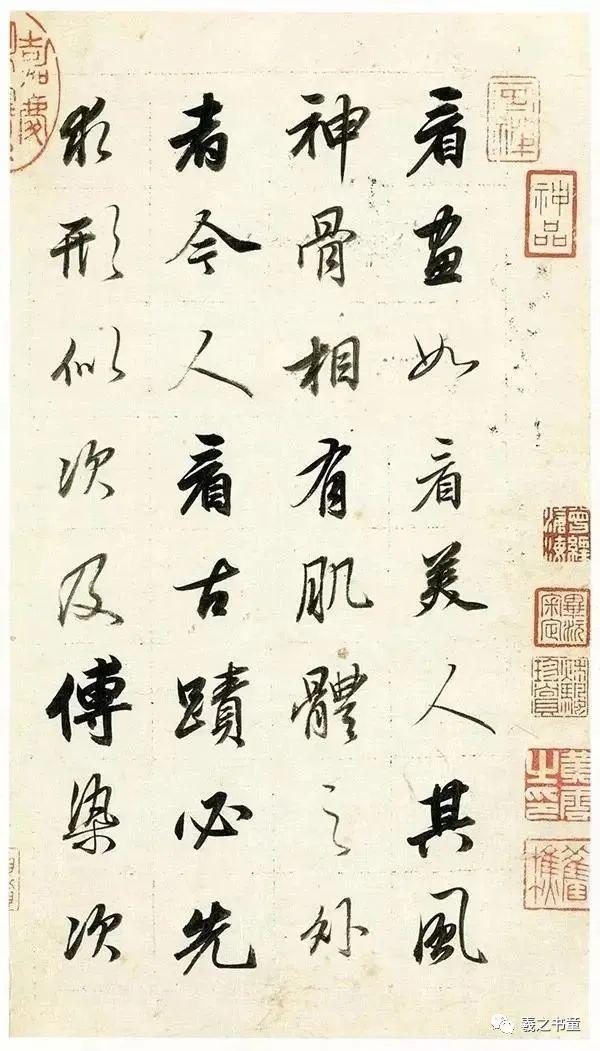 看畫如看美人其風
神骨相有肌體之外
者今人看古蹟必先
求形似次及傅染次
神品
羲之书童